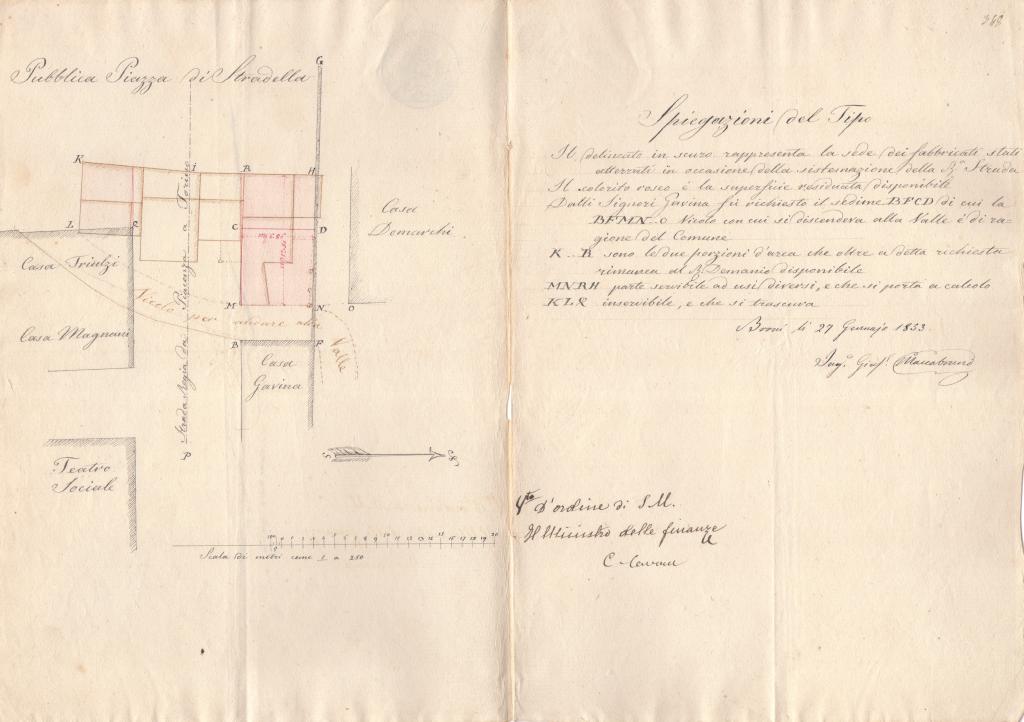 368
Pubblica Piazza di Stradella
G
K
I
R
H
L
E
C
D
Casa
Demarchi
Casa Triulzi
Strada Regia da Piacenza a Torino
M
N
O
Vicolo per andare alla
Valle
Casa Magnani
B
F
Casa
Gavina
P
S
Teatro
Sociale
Scala di metri come 1 a 250
Spiegazioni del Tipo
Il delineato in scuro rappresenta la sede dei fabbricati stati
atterrati in occasione della sistemazione della R.ª Strada
Il colorito roseo è la superficie residuata disponibile
Dalli Signori Gavina fù richiesto il sedime BFCD di cui la
BFMN o Vicolo con cui si discendeva alla Valle è di ra-
gione del Comune
sono le due porzioni d'area che oltre a detta richiesta
rimanea al R. Demanio disponibile
MNRH parte servibile ad usi diversi, e che si porta a calcolo
KLR inservibile, e che si trascura
Broni li 27 Gennajo 1853
Ing.e Gius.e
V.to d'ordine di S.M.
Il Ministro delle finanze
C. Cavour